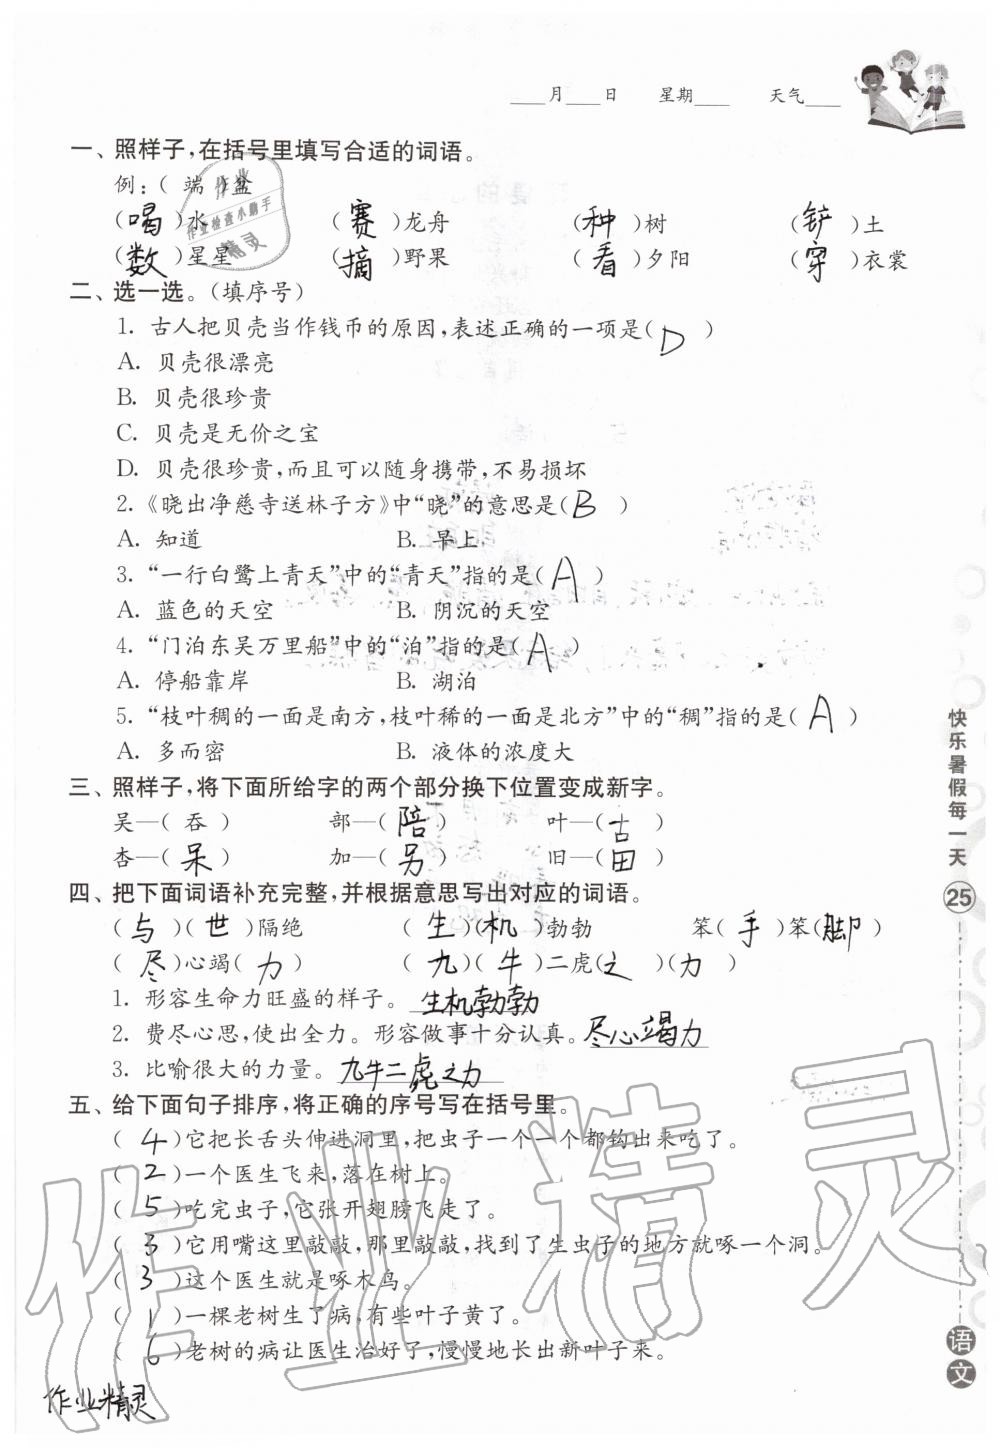 ____月____日 星期____ 天气____
一、照样子,在括号里填写合适的词语。
例:( 端 )盆
(喝)水 (赛)龙舟 (种)树 (铲)土
(数)星星 (摘)野果 (看)夕阳 (穿)衣裳
二、选一选。(填序号)
1. 古人把贝壳当作钱币的原因,表述正确的一项是( D )
A. 贝壳很漂亮
B. 贝壳很珍贵
C. 贝壳是无价之宝
D. 贝壳很珍贵,而且可以随身携带,不易损坏
2.《晓出净慈寺送林子方》中“晓”的意思是( B )
A. 知道 B. 早上
3. “一行白鹭上青天”中的“青天”指的是( A )
A. 蓝色的天空 B. 阴沉的天空
4. “门泊东吴万里船”中的“泊”指的是( A )
A. 停船靠岸 B. 湖泊
5. “枝叶稠的一面是南方,枝叶稀的一面是北方”中的“稠”指的是( A )
A. 多而密 B. 液体的浓度大
三、照样子,将下面所给字的两个部分换下位置变成新字。
吴—( 吞 ) 部—( 陪 ) 叶—( 古 )
杏—( 呆 ) 加—( 另 ) 旧—( 田 )
四、把下面词语补充完整,并根据意思写出对应的词语。
( 与 )( 世 )隔绝 ( 生 )( 机 )勃勃 笨( 手 )笨( 脚 )
( 尽 )心竭( 力 ) ( 九 )( 牛 )二虎( 之 )( 力 )
1. 形容生命力旺盛的样子。 生机勃勃
2. 费尽心思,使出全力。形容做事十分认真。 尽心竭力
3. 比喻很大的力量。 九牛二虎之力
五、给下面句子排序,将正确的序号写在括号里。
( 4 )它把长舌头伸进洞里,把虫子一个一个都钩出来吃了。
( 2 )一个医生飞来,落在树上。
( 5 )吃完虫子,它张开翅膀飞走了。
( 3 )它用嘴这里敲敲,那里敲敲,找到了生虫子的地方就啄一个洞。
( 3 )这个医生就是啄木鸟。
( 1 )一棵老树生了病,有些叶子黄了。
( 6 )老树的病让医生治好了,慢慢地长出新叶子来。
作业精灵
快乐暑假每一天
25
语文
作业
作业检查小助手
精灵
作业精灵